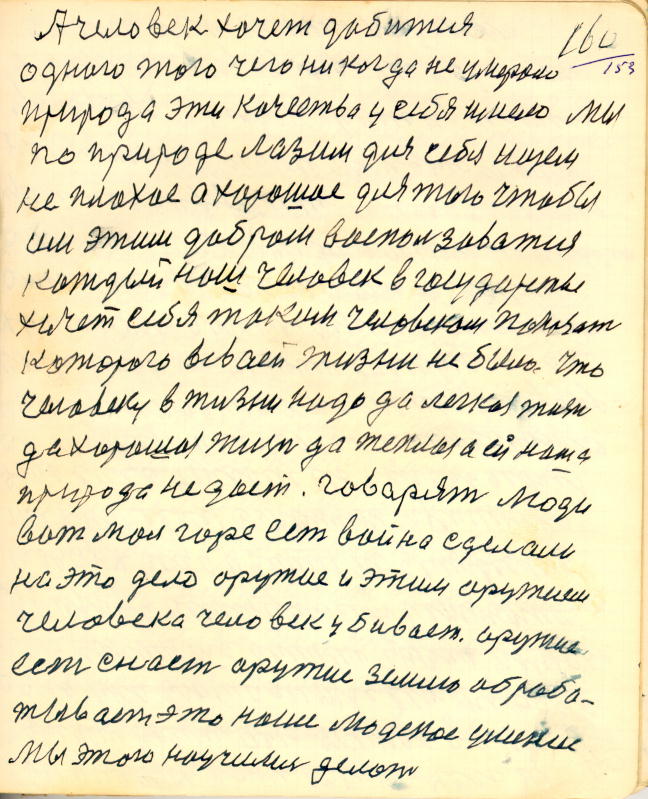 А человек хочет добится
160
153
одного того чего никогда не умерало
природа эти качества у себя имело мы
по природе лазим для себя ищем
не плохое а хорошое для того чтобы
им этим добром воспользоватия
каждый наш человек в государстве
хочет себя таким человеком показат
которого в своей жизни не было. Что
человеку в жизни надо да легкая жизн
да хорошая жизн да теплая а ей наша
природа не дает. говарят люди
вот моя горе ест война сделали
на это дело оружие и этим оружием
человека человек убивает. оружие
ест снаст оружие землю обраба-
тывает это наше людское умение
мы этого научились делат